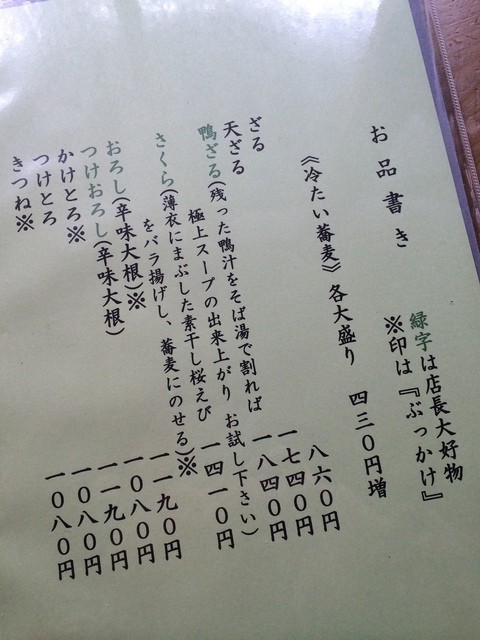 お品書き
緑字は店長大好物
※印は『ぶっかけ』
《冷たい蕎麦》各大盛り 四三〇円増
ざる 八六〇円
天ざる 一七四〇円
鴨ざる(残った鴨汁をそば湯で割れば 一八四〇円
極上スープの出来上がり お試し下さい)
さくら(薄衣にまぶした素干し桜えび 一四一〇円
をバラ揚げし、蕎麦にのせる)※
おろし(辛味大根)※ 一一九〇円
つけおろし(辛味大根) 一〇八〇円
かけとろ※ 一一九〇円
つけとろ 一〇八〇円
きつね※ 一〇八〇円